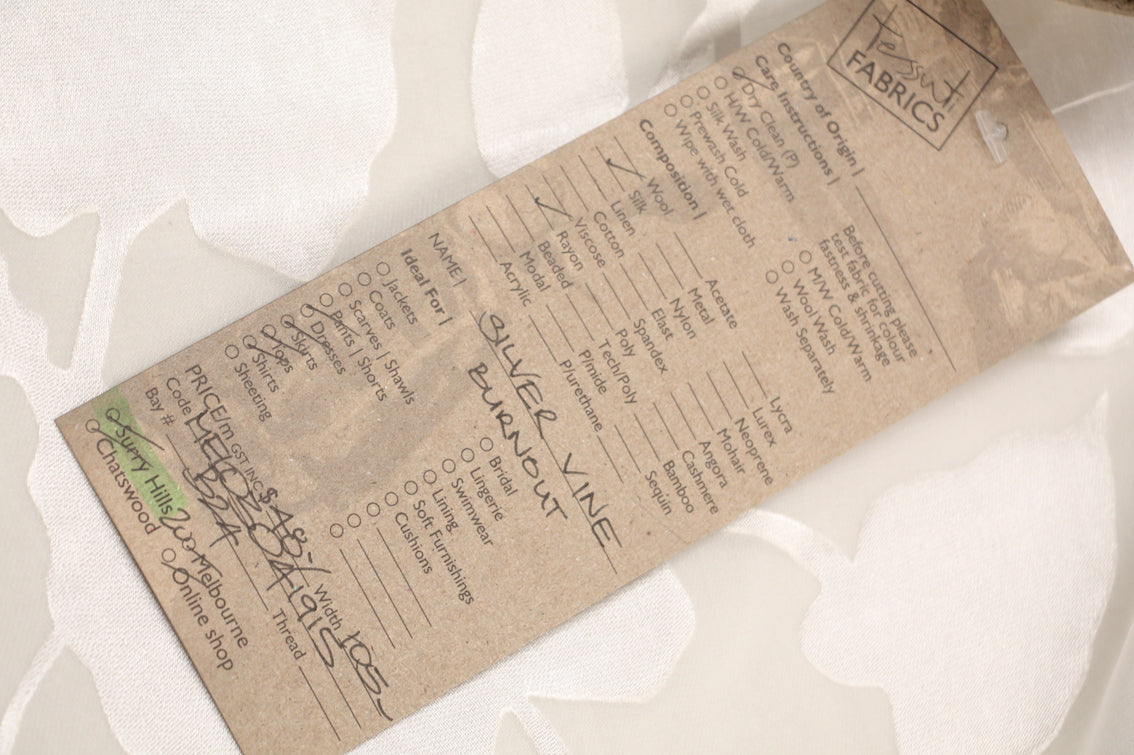 Tessuti
FABRICS
Country of Origin |
Care Instructions |
Dry Clean (P)
H/W Cold/Warm
Silk Wash
Prewash Cold
Wipe with wet cloth
Before cutting please
test fabric for colour
fastness & shrinkage
M/W Cold/Warm
Wool Wash
Wash Separately
Composition |
Wool Acetate Lycra
Silk Metal Lurex
Linen Nylon Neoprene
Cotton Elast Mohair
Viscose Spandex Angora
Rayon Poly Cashmere
Beaded Tech/Poly Bamboo
Modal P/mide Sequin
Acrylic P/urethane
NAME | SILVER VINE
BURNOUT
Ideal For |
Jackets Bridal
Coats Lingerie
Scarves | Shawls Swimwear
Pants | Shorts Lining
Dresses Soft Furnishings
Skirts Cushions
Tops
Shirts
Sheeting
PRICE/m GST INC $48.- Width 105-
Code
Bay # Thread
Surry Hills Melbourne
Chatswood Online shop